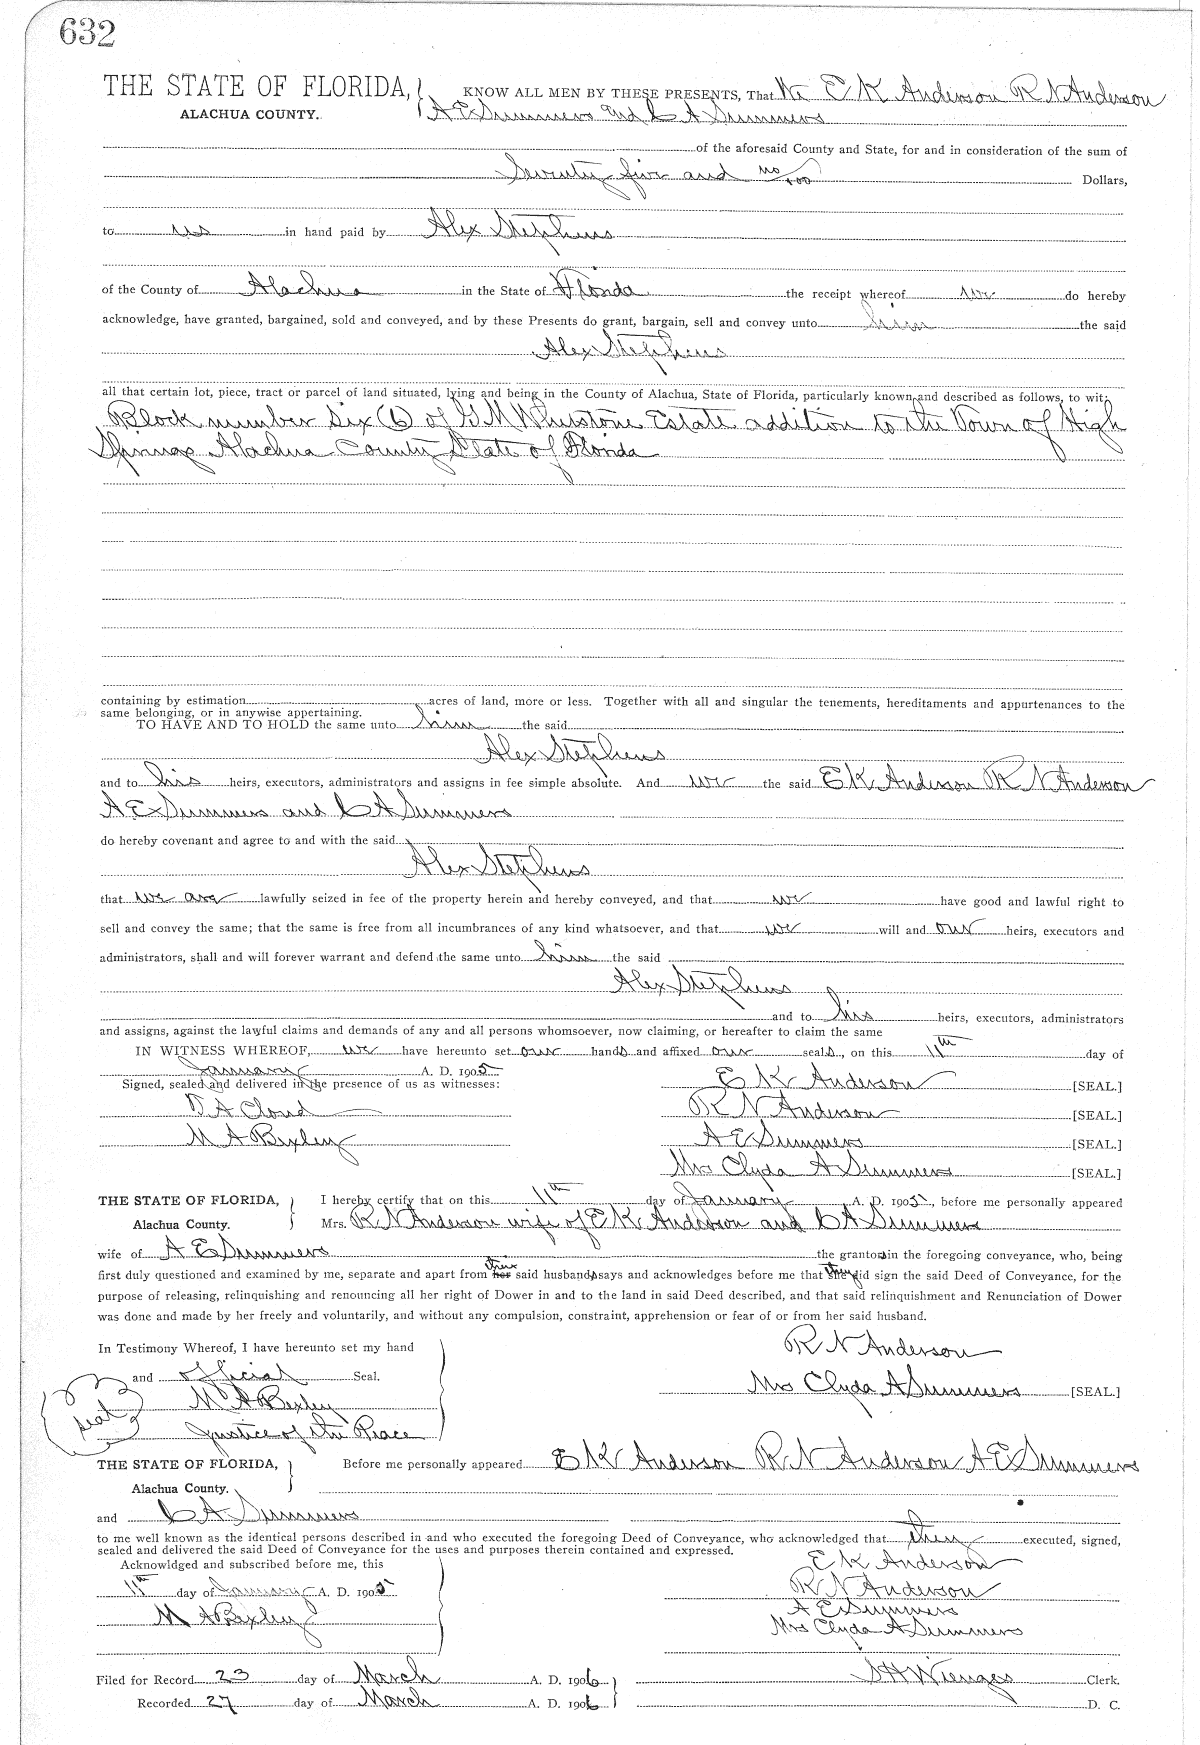 632
THE STATE OF FLORIDA, KNOW ALL MEN BY THESE PRESENTS, That We E K Anderson R N Anderson
ALACHUA COUNTY. A E Summers and C A Summers
of the aforesaid County and State, for and in consideration of the sum of
Seventy five and no/100 Dollars,
to us in hand paid by Alex Stephens
of the County of Alachua in the State of Florida the receipt whereof we do hereby
acknowledge, have granted, bargained, sold and conveyed, and by these Presents do grant, bargain, sell and convey unto him the said
Alex Stephens
all that certain lot, piece, tract or parcel of land situated, lying and being in the County of Alachua, State of Florida, particularly known and described as follows, to wit:
Block number six (6) of G M Whetstone Estate addition to the Town of High
Springs Alachua County State of Florida
containing by estimation acres of land, more or less. Together with all and singular the tenements, hereditaments and appurtenances to the
same belonging, or in anywise appertaining.
TO HAVE AND TO HOLD the same unto him the said
Alex Stephens
and to his heirs, executors, administrators and assigns in fee simple absolute. And we the said E K Anderson R N Anderson
A E Summers and C A Summers
do hereby covenant and agree to and with the said
Alex Stephens
that we are lawfully seized in fee of the property herein and hereby conveyed, and that we have good and lawful right to
sell and convey the same; that the same is free from all incumbrances of any kind whatsoever, and that we will and our heirs, executors and
administrators, shall and will forever warrant and defend the same unto him the said
Alex Stephens
and to his heirs, executors, administrators
and assigns, against the lawful claims and demands of any and all persons whomsoever, now claiming, or hereafter to claim the same
IN WITNESS WHEREOF, we have hereunto set our hands and affixed our seals, on this 11th day of
January A. D. 1905
Signed, sealed and delivered in the presence of us as witnesses: E K Anderson [SEAL.]
D A Cloud R N Anderson [SEAL.]
M A Bexley A E Summers [SEAL.]
Mrs Clyda A Summers [SEAL.]
THE STATE OF FLORIDA, I hereby certify that on this 11th day of January A. D. 1905, before me personally appeared
Alachua County. Mrs. R N Anderson wife of E K Anderson and C A Summers
wife of A E Summers the grantors in the foregoing conveyance, who, being
first duly questioned and examined by me, separate and apart from their said husbands says and acknowledges before me that they did sign the said Deed of Conveyance, for the
purpose of releasing, relinquishing and renouncing all her right of Dower in and to the land in said Deed described, and that said relinquishment and Renunciation of Dower
was done and made by her freely and voluntarily, and without any compulsion, constraint, apprehension or fear of or from her said husband.
In Testimony Whereof, I have hereunto set my hand R N Anderson
and official Seal. Mrs Clyda A Summers [SEAL.]
seal M A Bexley
Justice of the Peace
THE STATE OF FLORIDA, Before me personally appeared E K Anderson R N Anderson A E Summers
Alachua County.
and C A Summers
to me well known as the identical persons described in and who executed the foregoing Deed of Conveyance, who acknowledged that they executed, signed,
sealed and delivered the said Deed of Conveyance for the uses and purposes therein contained and expressed.
Acknowldged and subscribed before me, this E K Anderson
11th day of January A. D. 1905 R N Anderson
M A Bexley A E Summers
Mrs Clyda A Summers
Filed for Record 23 day of March A. D. 1906 S H Wienges Clerk.
Recorded 27 day of March A. D. 1906 D. C.